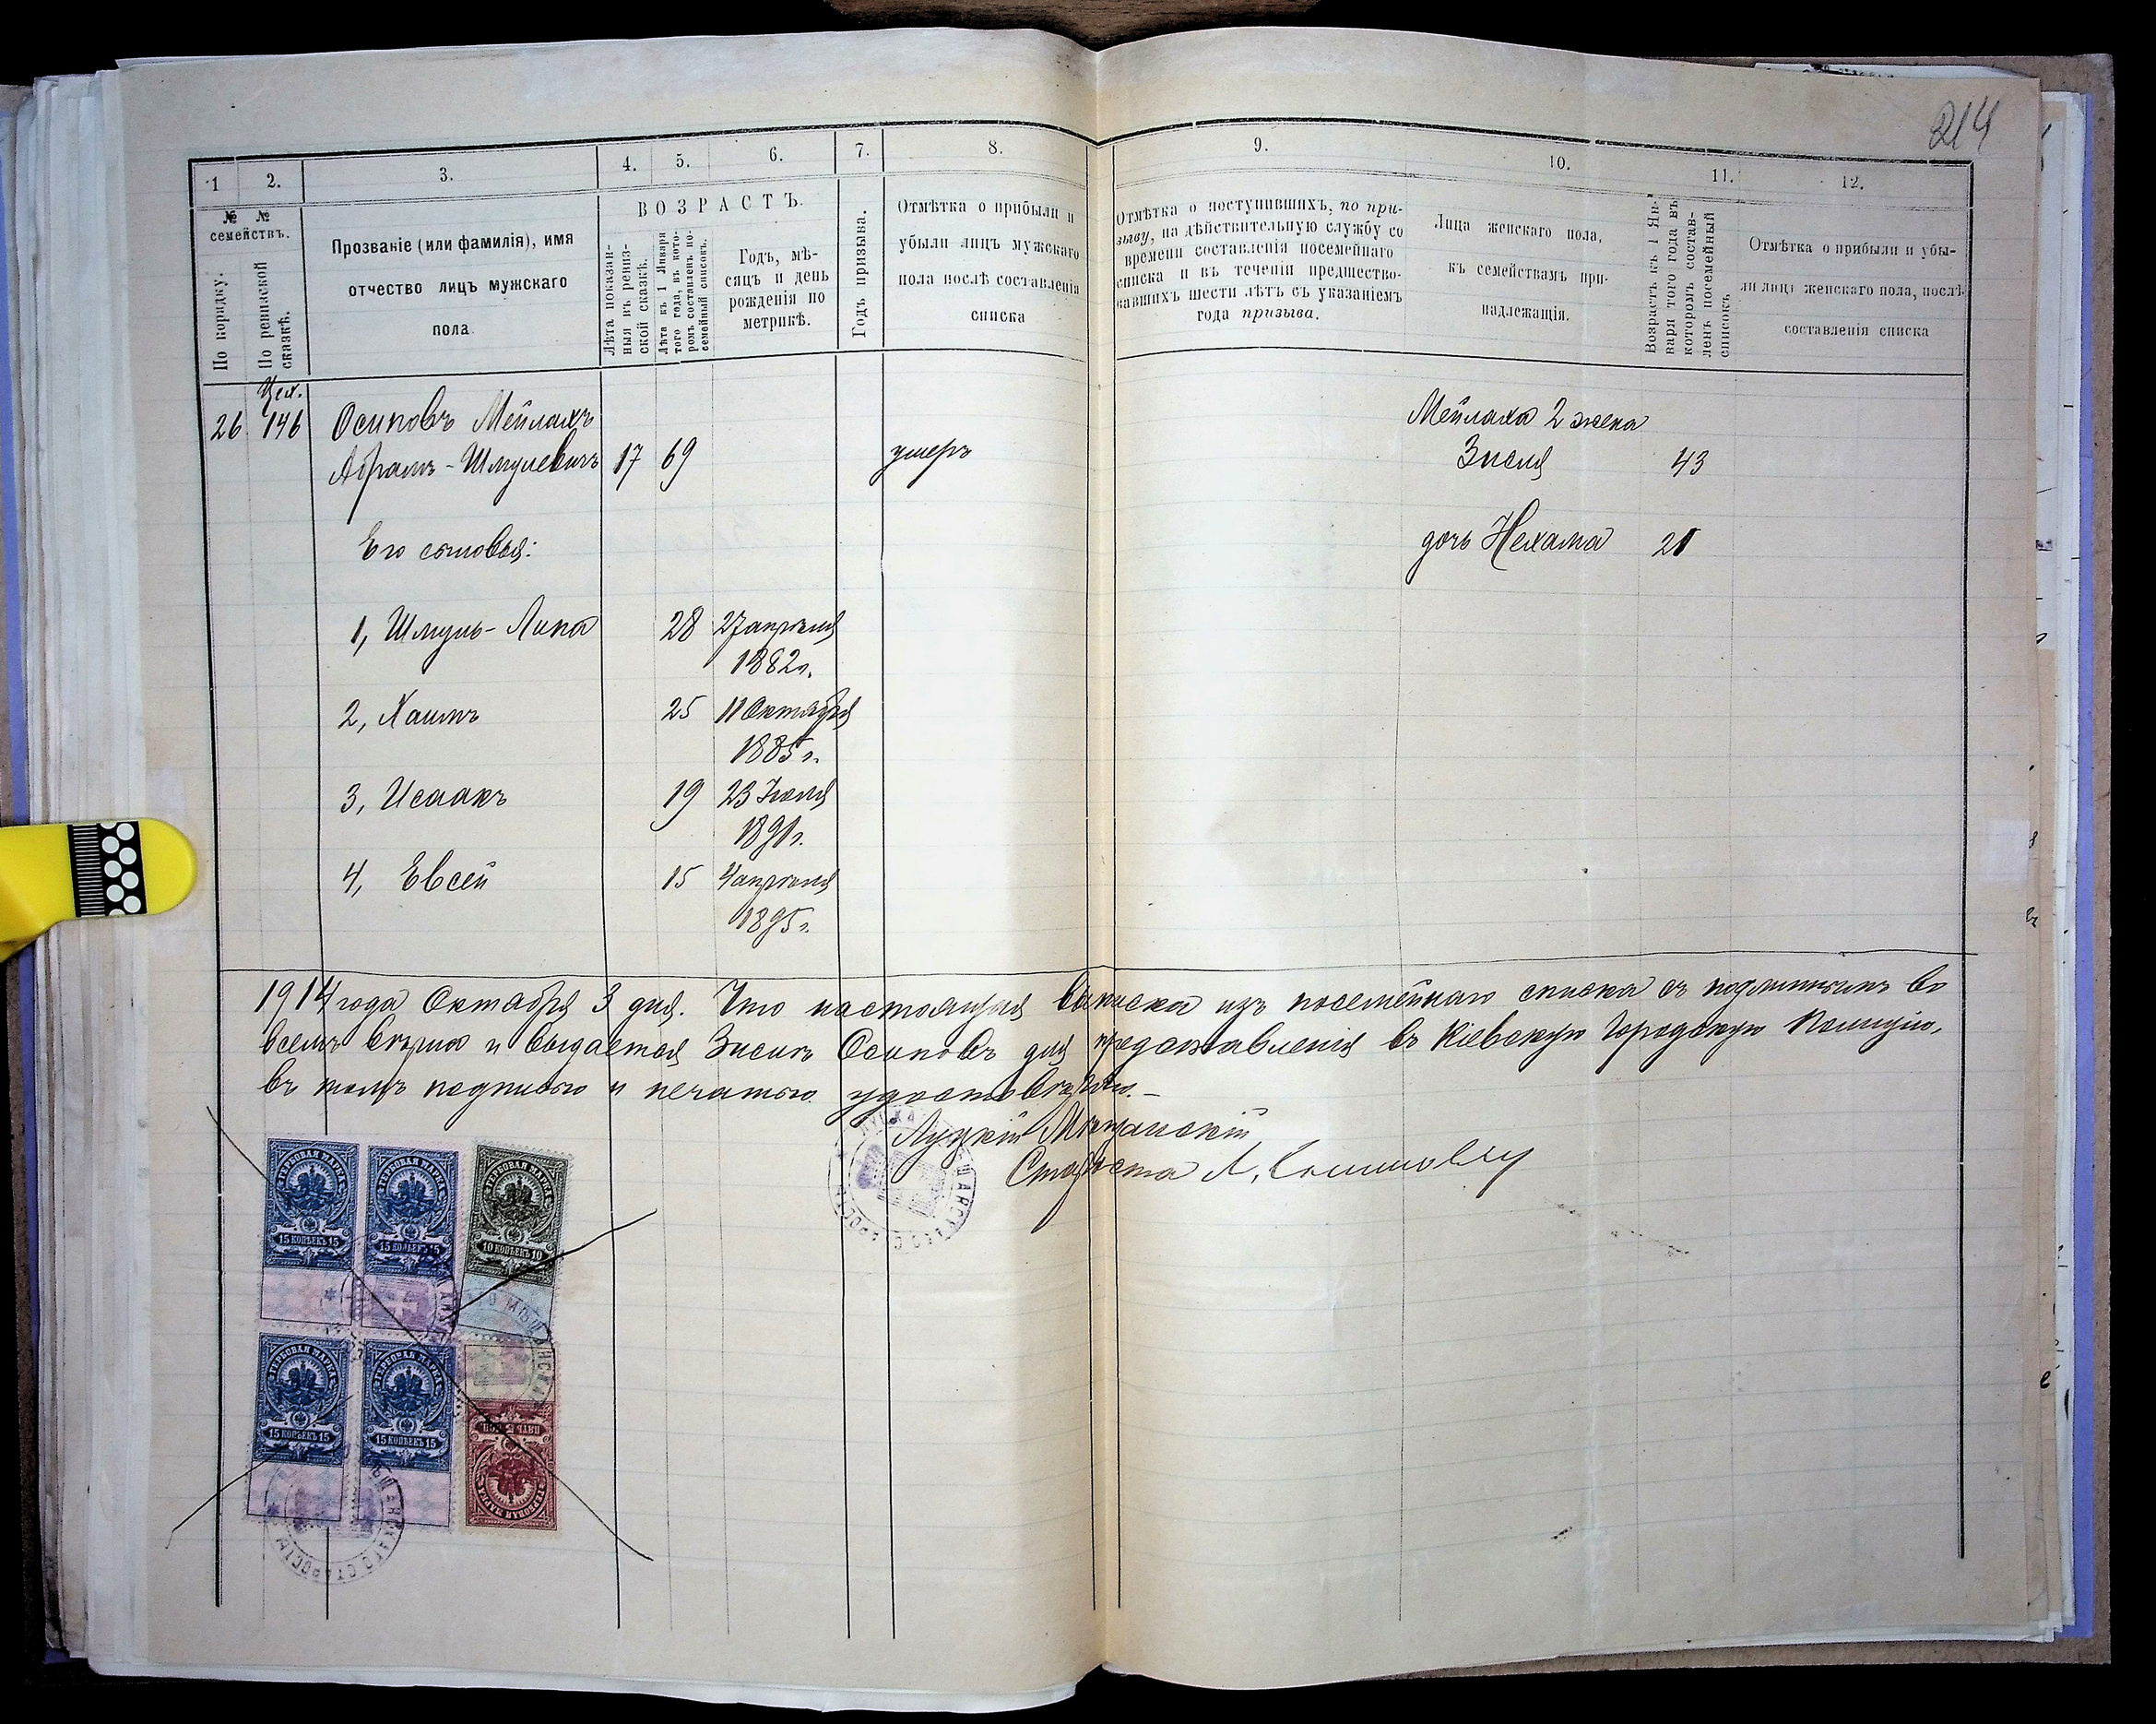 214
1 2. 3. 4. 5. 6. 7. 8. 9. 10. 11. 12.
№ № семействъ.
По порядку.
По ревизской сказкѣ.
Прозваніе (или фамилія), имя
отчество лицъ мужскаго
пола
ВОЗРАСТЪ.
Лѣта показан-
ныя въ ревиз-
ской сказкѣ.
Лѣта къ 1 Января
того года, въ кото-
ромъ составленъ по-
семейный списокъ.
Годъ, мѣ-
сяцъ и день
рожденія по
метрикѣ.
Годъ призыва.
Отмѣтка о прибыли и
убыли лицъ мужскаго
пола послѣ составленія
списка
Отмѣтка о поступившихъ, по при-
зыву, на дѣйствительную службу со
времени составленія посемейнаго
списка и въ теченіи предшество-
вавшихъ шести лѣтъ съ указаніемъ
года призыва.
Лица женскаго пола,
къ семействамъ при-
надлежащія.
Возрастъ къ 1 Ян-
варя того года въ
которомъ состав-
ленъ посемейный
списокъ
Отмѣтка о прибыли и убы-
ли лицъ женскаго пола, послѣ
составленія списка
26 146 Осиповъ Мейлахъ
Абрамъ-Шмулевичъ 17 69 умеръ
Мейлаха 2 жена
Зисля 43
Его сыновья:
дочь Нехама 21
1, Шмуль-Липа 28 27 апрѣля
1882 г.
2, Хаимъ 25 11 Октября
1885 г.
3, Исаакъ 19 23 Іюля
1891 г.
4, Евсей 15 4 апрѣля
1895 г.
1914 года Октября 3 дня. Что настоящая выписка изъ посемейнаго списка съ подлиннымъ во
всемъ вѣрна и выдается Зислѣ Осиповъ для представленія въ Кіевскую Городскую Полицію,
въ томъ подписью и печатью удостовѣряю.-
Луцкій Мѣщанскій
Староста Л.
ГЕРБОВАЯ МАРКА
15 КОПѢЕКЪ 15
ГЕРБОВАЯ МАРКА
15 КОПѢЕКЪ 15
ГЕРБОВАЯ МАРКА
10 КОПѢЕКЪ 10
ГЕРБОВАЯ МАРКА
15 КОПѢЕКЪ 15
ГЕРБОВАЯ МАРКА
15 КОПѢЕКЪ 15
ГЕРБОВАЯ МАРКА
ПЯТЬ КОП.